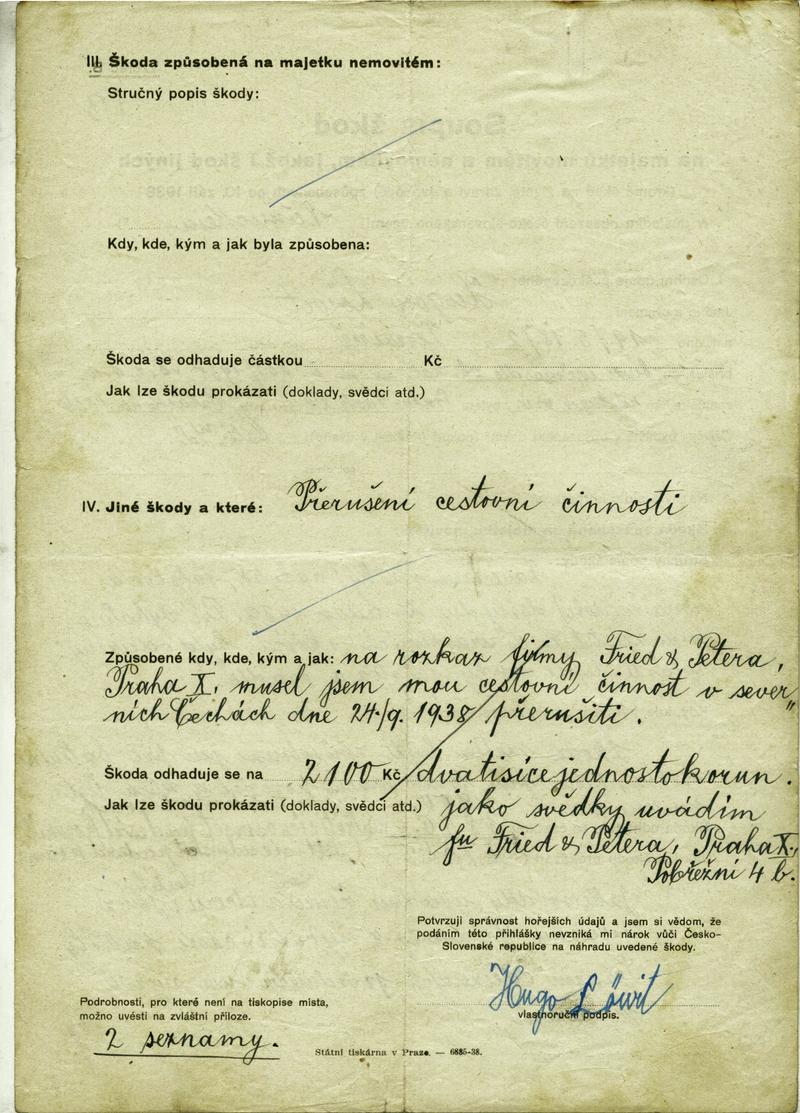 III. Škoda způsobená na majetku nemovitém:
Stručný popis škody:
Kdy, kde, kým a jak byla způsobena:
Škoda se odhaduje částkou Kč
Jak lze škodu prokázati (doklady, svědci atd.)
IV. Jiné škody a které: Přerušení cestovní činnosti
Způsobené kdy, kde, kým a jak: na rozkaz firmy Fried & Petera,
Praha X. musel jsem mou cestovní činnost v sever„
ních Čechách dne 24./9. 1938 přerušiti.
Škoda odhaduje se na 2100 Kč dvatisícejednostokorun.
Jak lze škodu prokázati (doklady, svědci atd.) jako svědky uvádím
fu Fried & Petera, Praha X.,
Pobřežní 4 b.
Potvrzuji správnost hořejších údajů a jsem si vědom, že
podáním této přihlášky nevzniká mi nárok vůči Česko-
Slovenské republice na náhradu uvedené škody.
Hugo Löwit
vlastnoruční podpis.
Podrobnosti, pro které není na tiskopise místa,
možno uvésti na zvláštní příloze.
2 seznamy.
Státní tiskárna v Praze. — 6885-38.